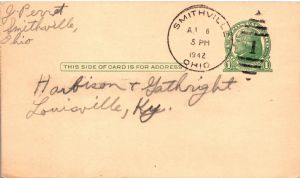 G Perret
Smithville,
Ohio
SMITHVILLE
6
5 PM
1942
OHIO
THIS SIDE OF CARD IS FOR ADDRESS
Harbison & Gathright
Louisville, Ky.